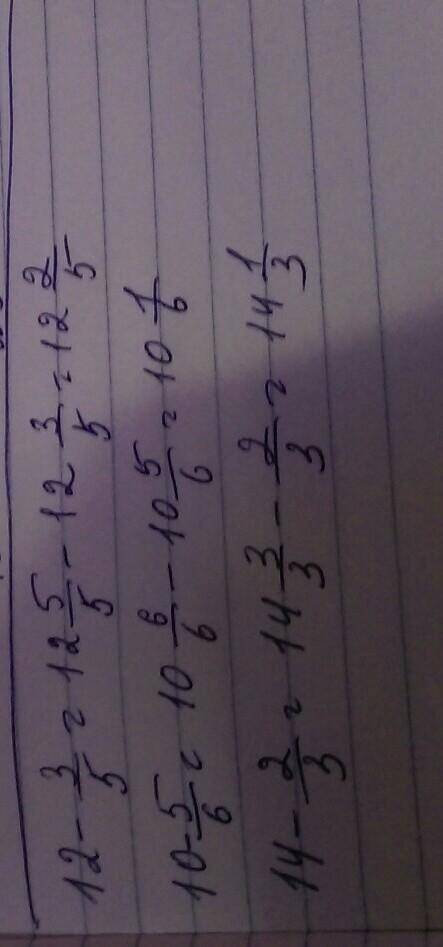 12 - 3/5 = 12 5/5 - 12 3/5 = 12 2/5
10 - 5/6 = 10 6/6 - 10 5/6 = 10 1/6
14 - 2/3 = 14 3/3 - 2/3 = 14 1/3